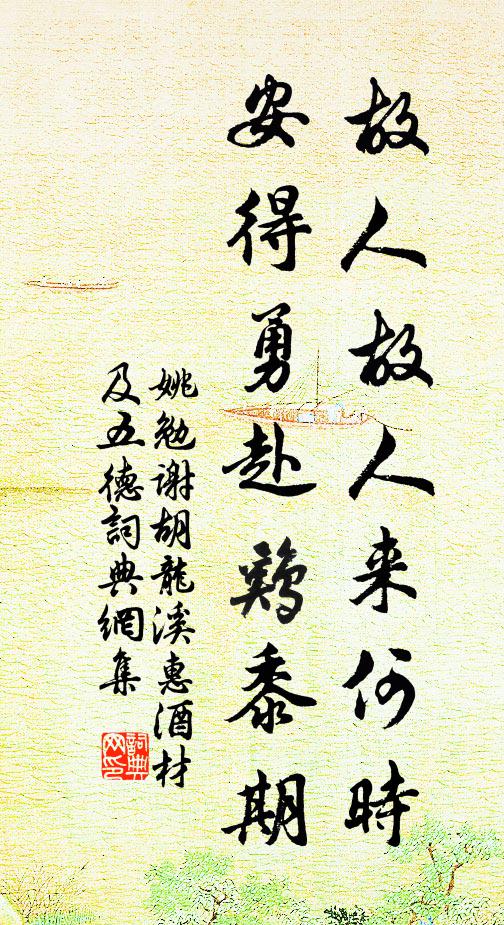 故人故人来何時
安得勇赴鷄黍期
姚勉谢胡龍溪惠酒材
及五德詞典網集
詞典网印